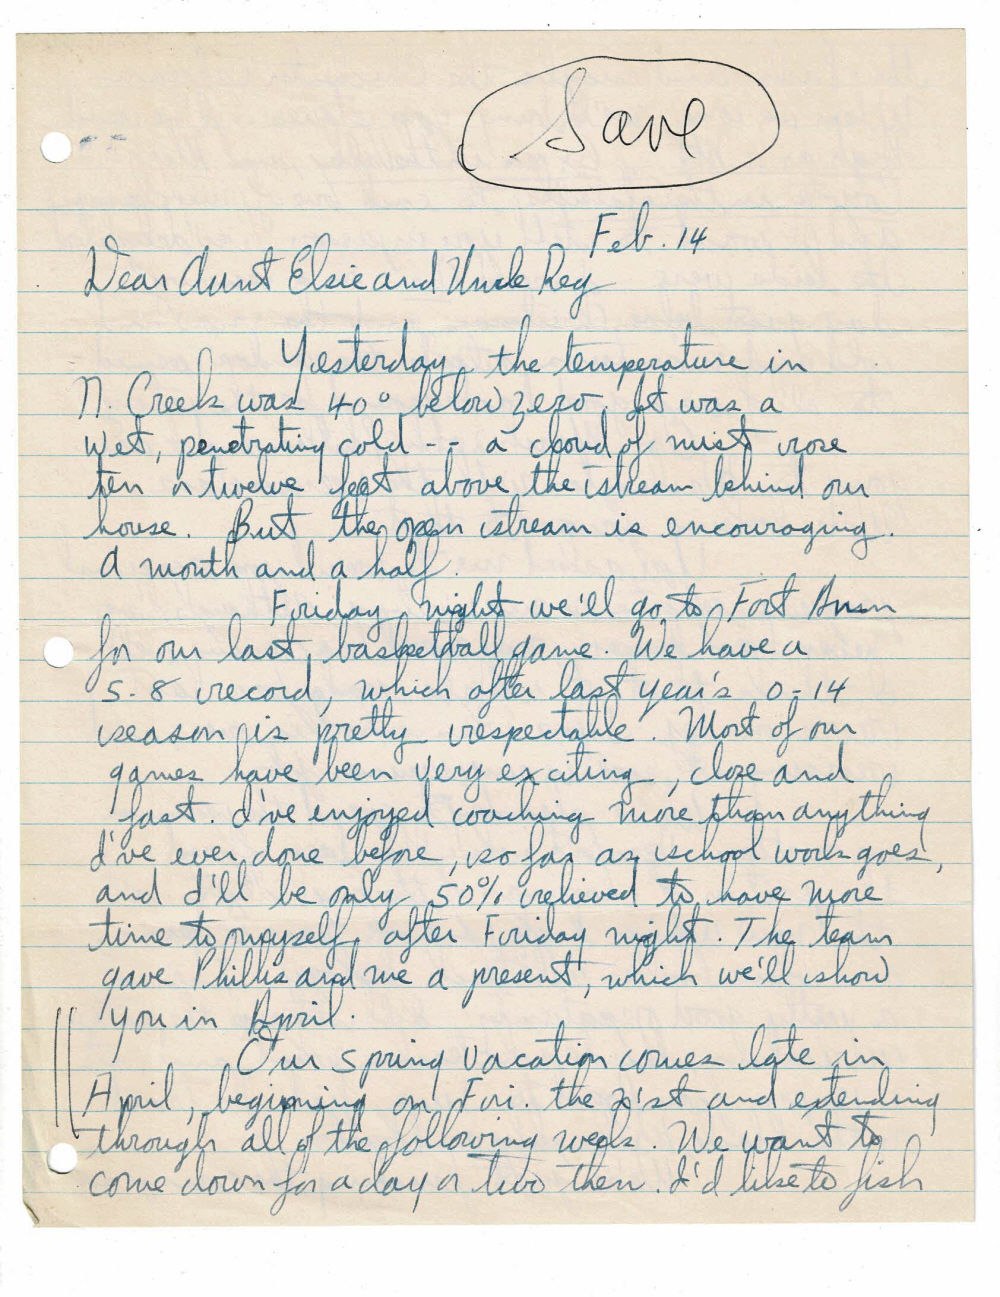 Save
Feb. 14
Dear Aunt Elsie and Uncle Reg
Yesterday the temperature in
N. Creek was 40° below zero. It was a
wet, penetrating cold -- a cloud of mist rose
ten or twelve feet above the stream behind our
house. But the open stream is encouraging.
A month and a half.
Friday night we'll go to Fort Ann
for our last basketball game. We have a
5-8 record, which after last year's 0-14
season is pretty respectable. Most of our
games have been very exciting, close and
fast. I've enjoyed coaching more than anything
I've ever done before, so far as school work goes,
and I'll be only 50% relieved to have more
time to myself after Friday night. The team
gave Phillis and me a present, which we'll show
you in April.
Our spring vacation comes late in
April, beginning on Fri. the 21st and extending
through all of the following week. We want to
come down for a day or two then. I'd like to fish